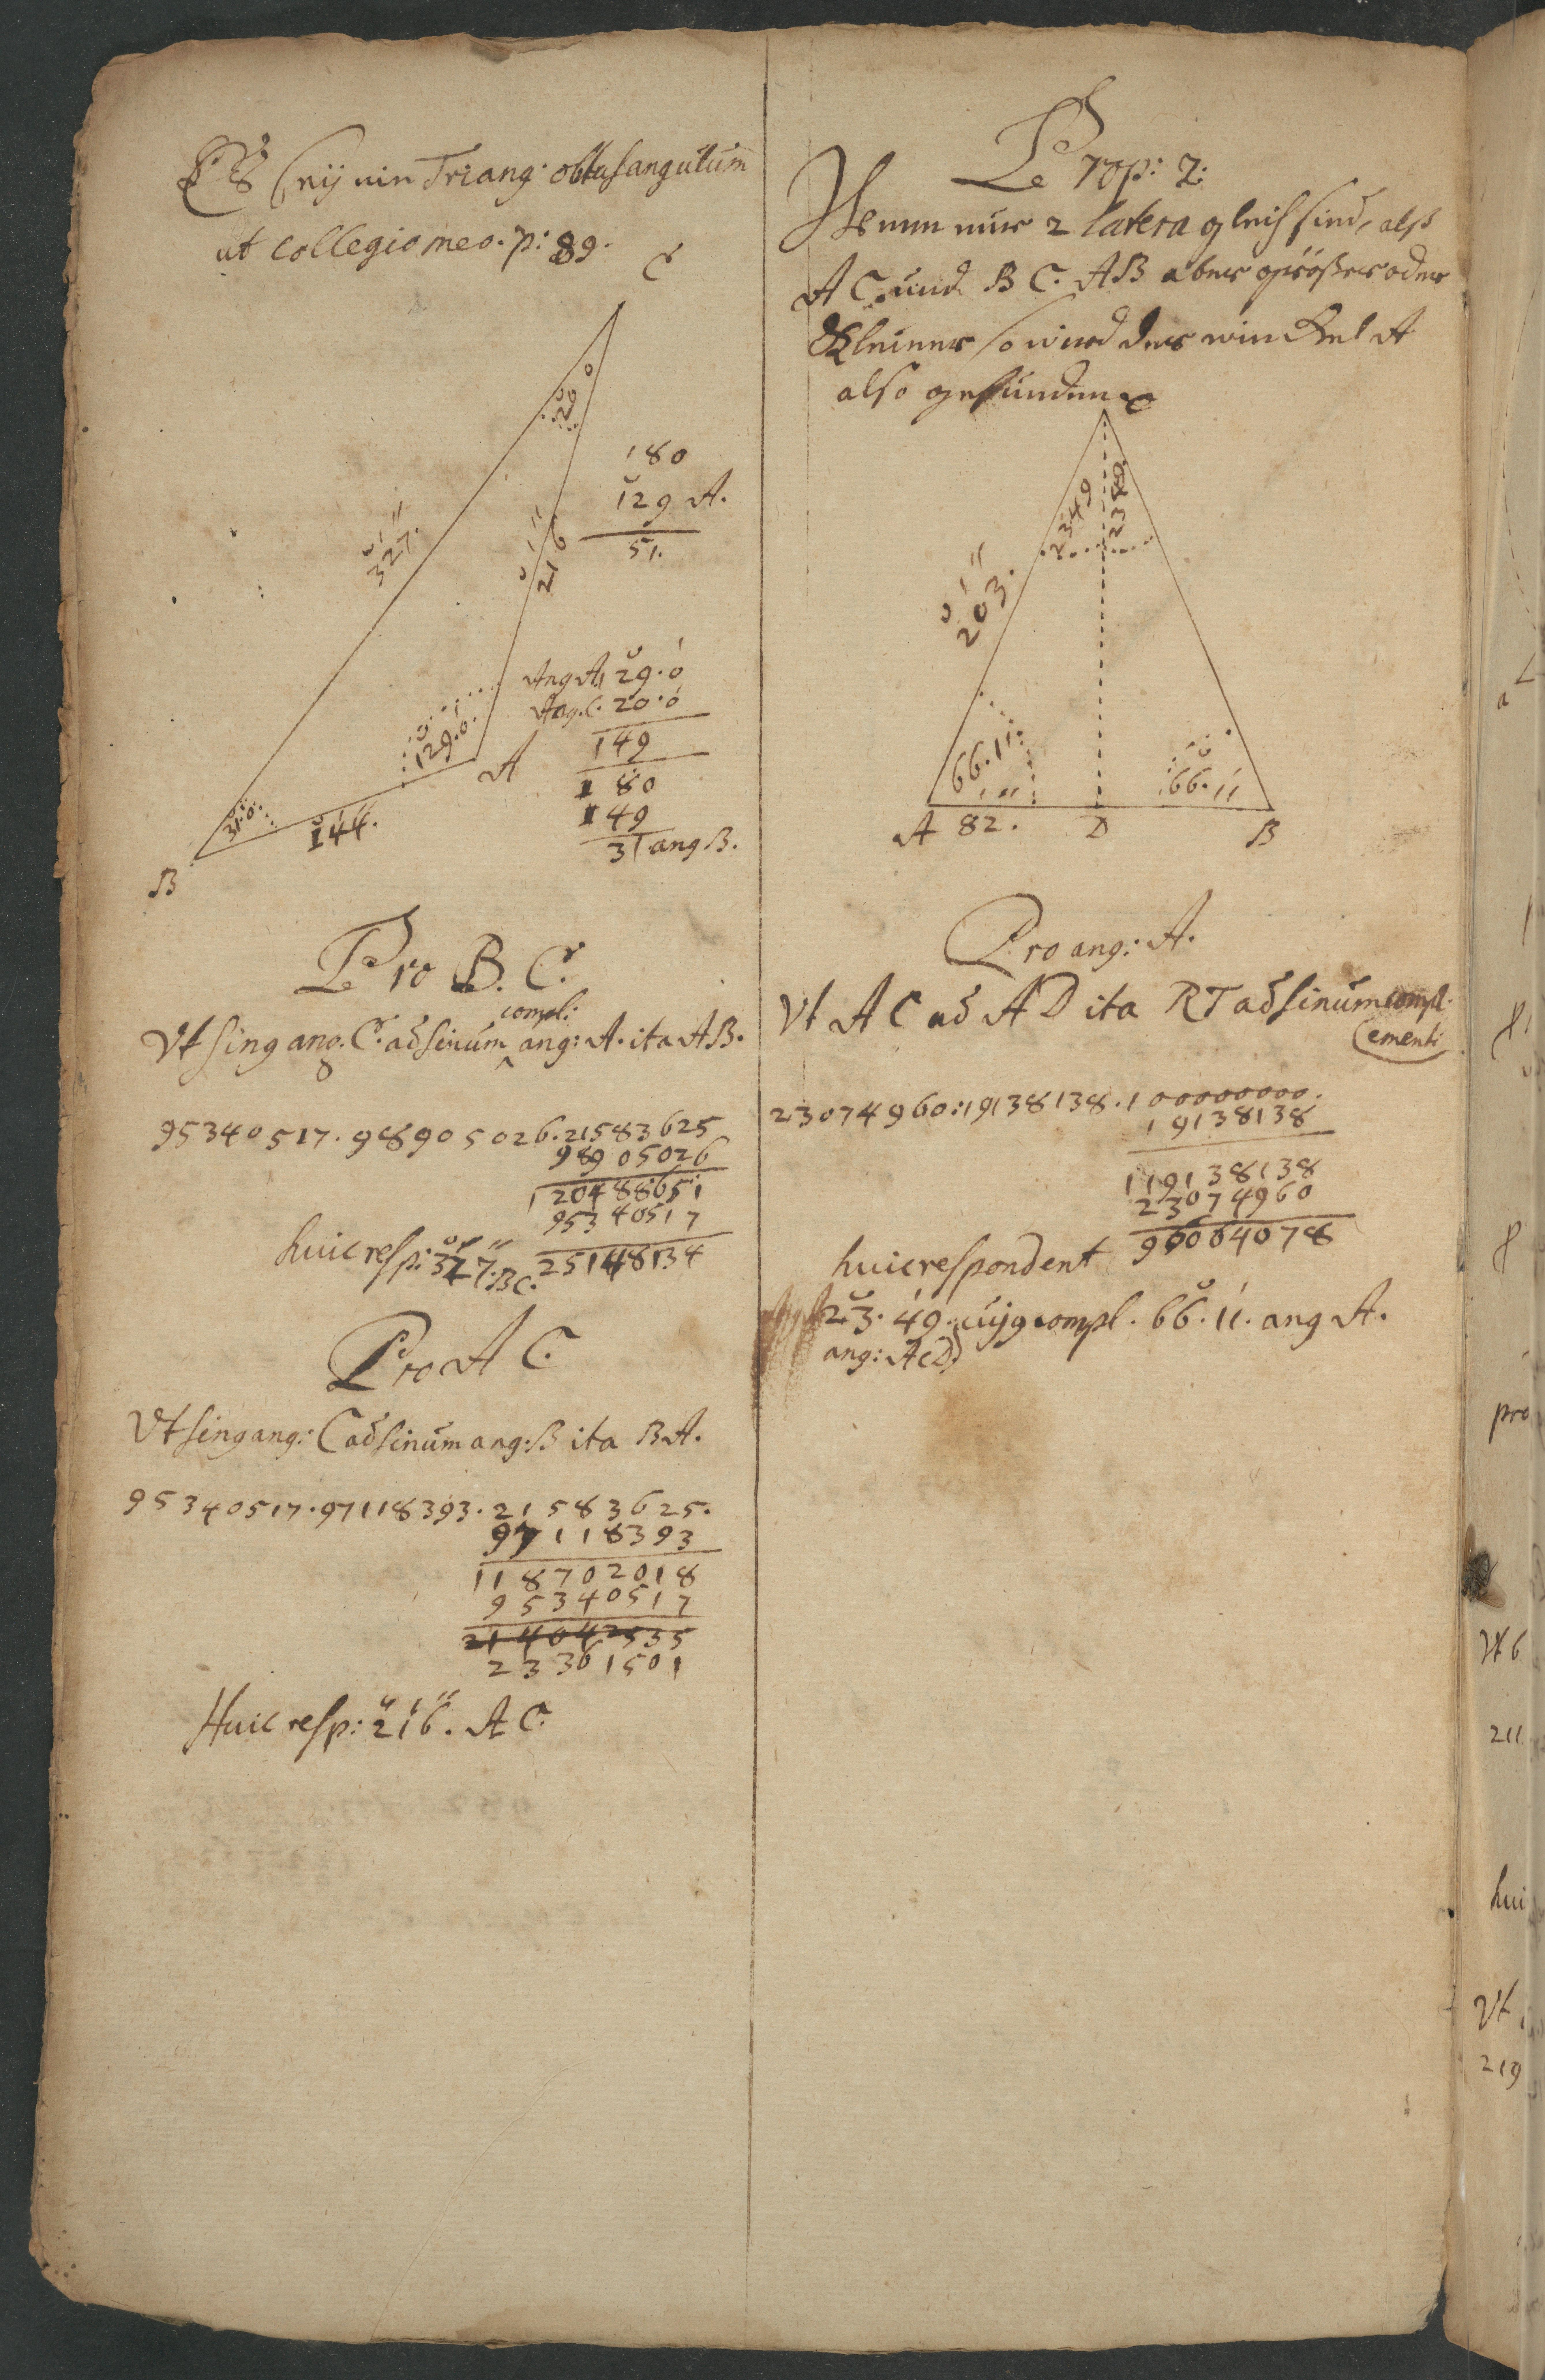 Es seÿ ein Triang: obtusangulum
ut collegio meo. p: 89.
C
20 0
327.
216
180
129 A.
51.
Ang A 129. 0
Ang. C. 20. 0
149
180
149
31 ang B.
129. 0.
A
31. 0.
144.
B
Pro B. C.
compl:
Vt sing ang. C. ad sinum ^ ang: A. ita AB.
95340517. 98905026. 21583625
98905026
120488651
95340517
25148134
huic resp: 327. BC.
Pro A C.
Vt sing ang: C ad sinum ang: B ita BA.
95340517. 97118393. 21583625.
97118393
118702018
95340517
214042535
23361501
Huic resp: 216. A C.
Prop: 2:
Wenn nur 2 latera gleich sind, alß
A C. und B C. AB aber größer oder
Kleiner so wird der winckel A
also gefunden
C
2349
2349
203.
66. 11.
66. 11
A 82. D B
Pro ang: A.
Vt A C ad A D ita RT ad sinum compl:
ementi
23074960: 19138138. 100000000.
19138138
119138138
23074960
96064078
huic respondent
23. 49. cujq compl. 66. 11. ang A.
ang: ACD)
pro
Vt
211
hui
Vt
219